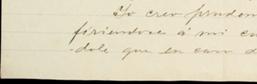 Yo creo pruden
firiendose á mi cu
dole que en caso d